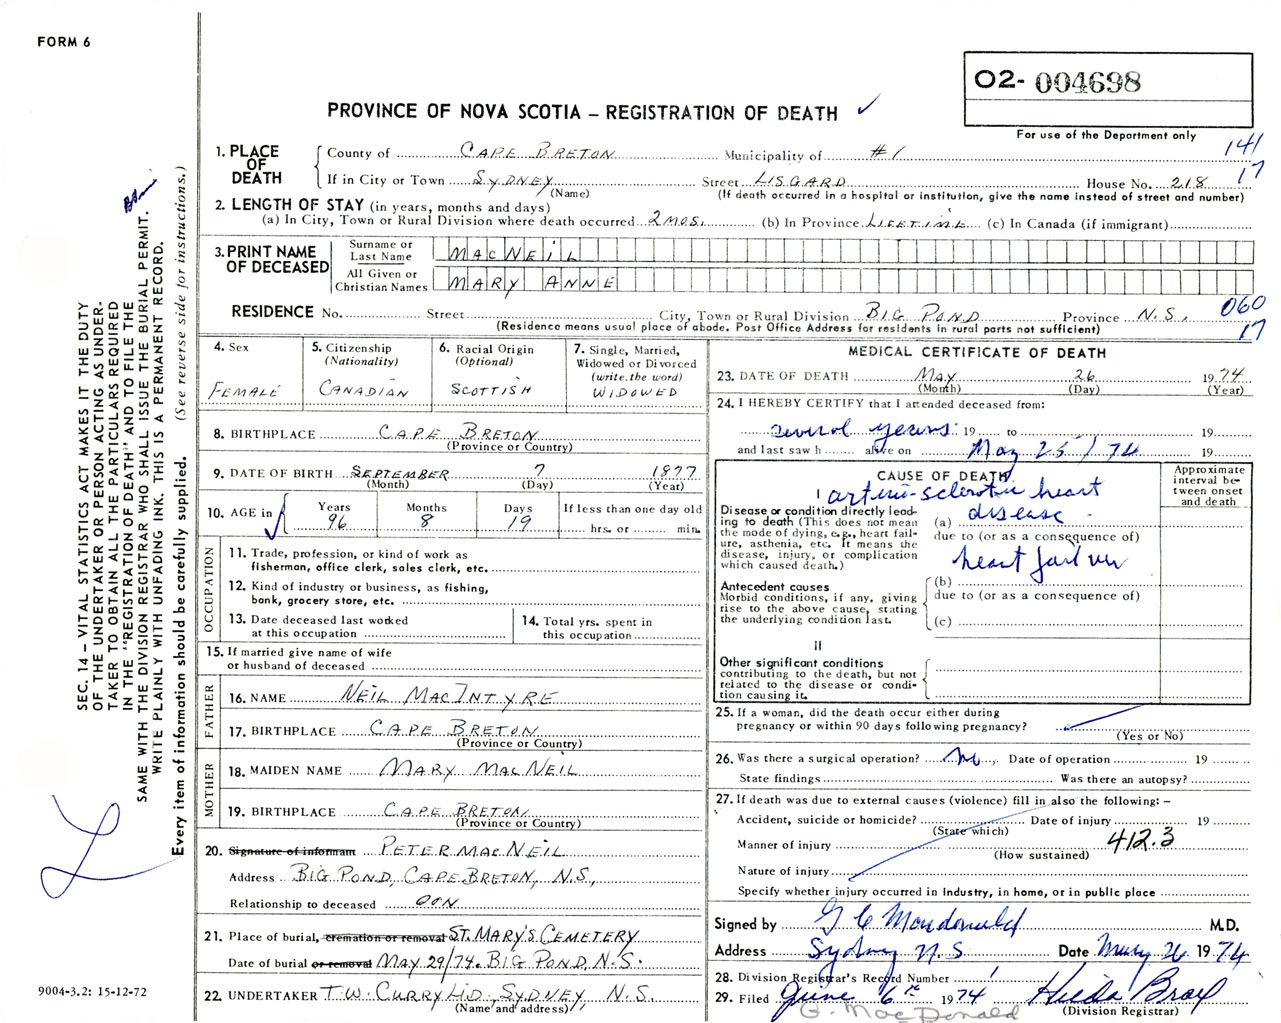 FORM 6
O2- 004698
For use of the Department only
PROVINCE OF NOVA SCOTIA – REGISTRATION OF DEATH ✓
141
17
1. PLACE OF DEATH
County of CAPE BRETON Municipality of #1
If in City or Town SYDNEY Street LISGARD House No. 218
(Name) (If death occurred in a hospital or institution, give the name instead of street and number)
2. LENGTH OF STAY (in years, months and days)
(a) In City, Town or Rural Division where death occurred 2 MOS. (b) In Province LIFETIME (c) In Canada (if immigrant)
3. PRINT NAME OF DECEASED
Surname or Last Name MACNEIL
All Given or Christian Names MARY ANNE
RESIDENCE No. Street City, Town or Rural Division BIG POND Province N.S.
(Residence means usual place of abode. Post Office Address for residents in rural parts not sufficient)
060
17
4. Sex
FEMALE
5. Citizenship
(Nationality)
CANADIAN
6. Racial Origin
(Optional)
SCOTTISH
7. Single, Married,
Widowed or Divorced
(write the word)
WIDOWED
8. BIRTHPLACE CAPE BRETON
(Province or Country)
9. DATE OF BIRTH SEPTEMBER 7 1877
(Month) (Day) (Year)
10. AGE in
Years Months Days If less than one day old
96 8 19 hrs. or min.
OCCUPATION
11. Trade, profession, or kind of work as
fisherman, office clerk, sales clerk, etc.
12. Kind of industry or business, as fishing,
bank, grocery store, etc.
13. Date deceased last worked
at this occupation
14. Total yrs. spent in
this occupation
15. If married give name of wife
or husband of deceased
FATHER
16. NAME NEIL MACINTYRE
17. BIRTHPLACE CAPE BRETON
(Province or Country)
MOTHER
18. MAIDEN NAME MARY MACNEIL
19. BIRTHPLACE CAPE BRETON
(Province or Country)
20. Signature of informant PETER MACNEIL
Address BIG POND, CAPE BRETON, N.S.,
Relationship to deceased SON
21. Place of burial, cremation or removal ST. MARY'S CEMETERY
Date of burial or removal MAY 29/74. BIG POND, N.S.
22. UNDERTAKER T.W. CURRY LTD., SYDNEY, N.S.
(Name and address)
MEDICAL CERTIFICATE OF DEATH
23. DATE OF DEATH MAY 26 1974
(Month) (Day) (Year)
24. I HEREBY CERTIFY that I attended deceased from:
several years 19 to 19
and last saw h alive on May 25/74 19
CAUSE OF DEATH
Approximate interval between onset and death
I
arterio-sclerotic heart
Disease or condition directly leading to death (This does not mean the mode of dying, e.g., heart failure, asthenia, etc. It means the disease, injury, or complication which caused death.)
(a) disease
due to (or as a consequence of)
heart failure
Antecedent causes
Morbid conditions, if any, giving rise to the above cause, stating the underlying condition last.
(b)
due to (or as a consequence of)
(c)
II
Other significant conditions
contributing to the death, but not related to the disease or condition causing it.
25. If a woman, did the death occur either during
pregnancy or within 90 days following pregnancy?
(Yes or No)
26. Was there a surgical operation? no Date of operation 19
State findings Was there an autopsy?
27. If death was due to external causes (violence) fill in also the following: –
Accident, suicide or homicide? Date of injury 19
(State which)
Manner of injury 412.3
(How sustained)
Nature of injury
Specify whether injury occurred in Industry, in home, or in public place
Signed by G C Macdonald M.D.
Address Sydney N.S Date May 26 1974
28. Division Registrar's Record Number 1
29. Filed June 6th 1974 Hilda Bray
(Division Registrar)
G. MacDonald
SEC. 14 – VITAL STATISTICS ACT MAKES IT THE DUTY
OF THE UNDERTAKER OR PERSON ACTING AS UNDER-
TAKER TO OBTAIN ALL THE PARTICULARS REQUIRED
IN THE "REGISTRATION OF DEATH" AND TO FILE THE
SAME WITH THE DIVISION REGISTRAR WHO SHALL ISSUE THE BURIAL PERMIT.
WRITE PLAINLY WITH UNFADING INK. THIS IS A PERMANENT RECORD.
Every item of information should be carefully supplied. (See reverse side for instructions.)
9004-3.2: 15-12-72